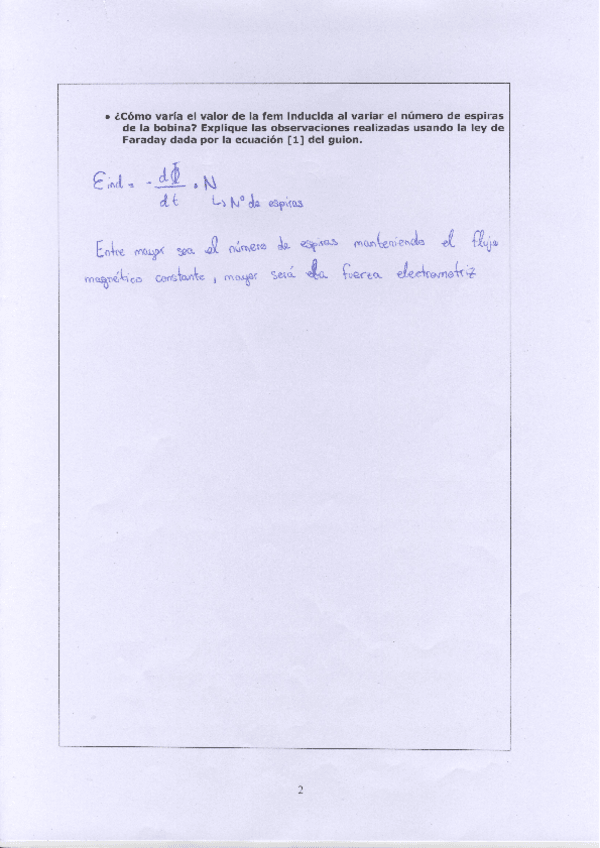 • ¿Cómo varía el valor de la fem inducida al variar el número de espiras
de la bobina? Explique las observaciones realizadas usando la ley de
Faraday dada por la ecuación [1] del guion.
Ɛind = - dΦ/dt · N
↳ Nº de espiras
Entre mayor sea el número de espiras manteniendo el flujo
magnético constante, mayor será la fuerza electromotriz
2